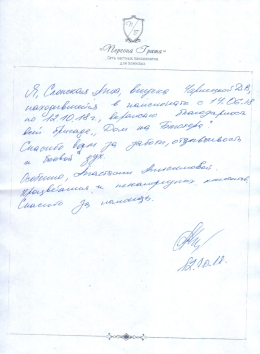 «Персона Грата»
Сеть частных пансионатов
для пожилых
Я, Слонская Яна, внучка
находившейся в пансионате с 14.06.18
по 12.10.18г, выражаю благодарность
всей бригаде „Дом на
Спасибо всем за заботу, отзывчивость
и боевой дух.
Особенно, Анастасии
процветания и
Спасибо за помощь.
12.10.18.